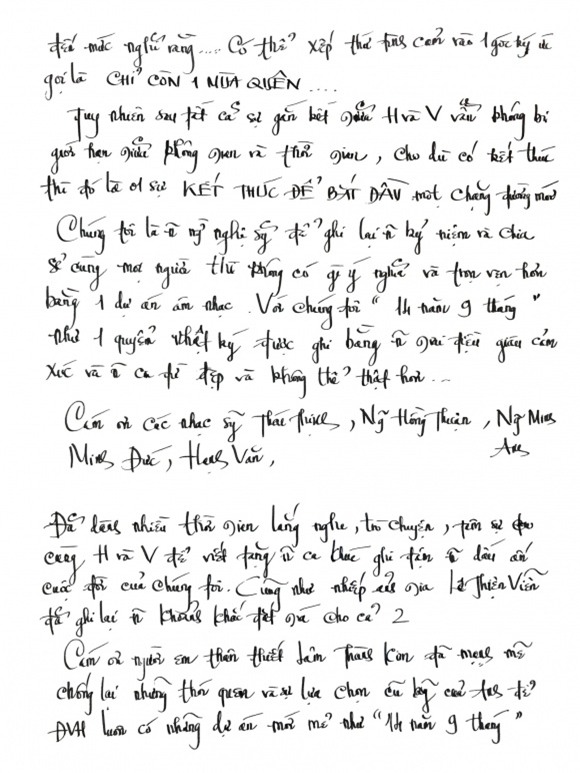 đến mức nghĩ rằng.... Có thể xếp thứ tình cảm vào 1 góc ký ức
gọi là CHỈ CÒN 1 NỬA QUÊN....
Tuy nhiên sau tất cả sự gắn kết giữa H và V vẫn không bị
giới hạn giữa không gian và thời gian, cho dù có kết thúc
thì đó là 01 sự KẾT THÚC ĐỂ BẮT ĐẦU một chặng đường mới
Chúng tôi là n~ ng~ nghệ sỹ để ghi lại n~ kỷ niệm và chia
sẻ cùng mọi người thì không có gì ý nghĩa và trọn vẹn hơn
bằng 1 dự án âm nhạc. Với chúng tôi "14 năm 9 tháng"
như 1 quyển nhật ký được ghi bằng n~ giai điệu giàu cảm
xúc và n~ ca từ đẹp và không thể thật hơn...
Cám ơn các nhạc sỹ Thái Thịnh, Ng~ Hồng Thuận, Ng~ Minh
Anh
Minh Đức, Hằng Văn,
Đã dành nhiều thời gian lắng nghe, trò chuyện, tâm sự
cùng H và V để viết tặng n~ ca khúc ghi đậm n~ dấu ấn
cuộc đời của chúng tôi. Cũng như nhiếp ảnh gia Lê Thiện Viễn
đã ghi lại n~ khoảnh khắc đắt giá cho cả 2
Cám ơn người em thân thiết Lâm Thành Kim đã mạnh mẽ
chống lại những thói quen và sự lựa chọn cũ kỹ của Anh để
ĐVH luôn có những dự án mới mẻ như "14 năm 9 tháng"